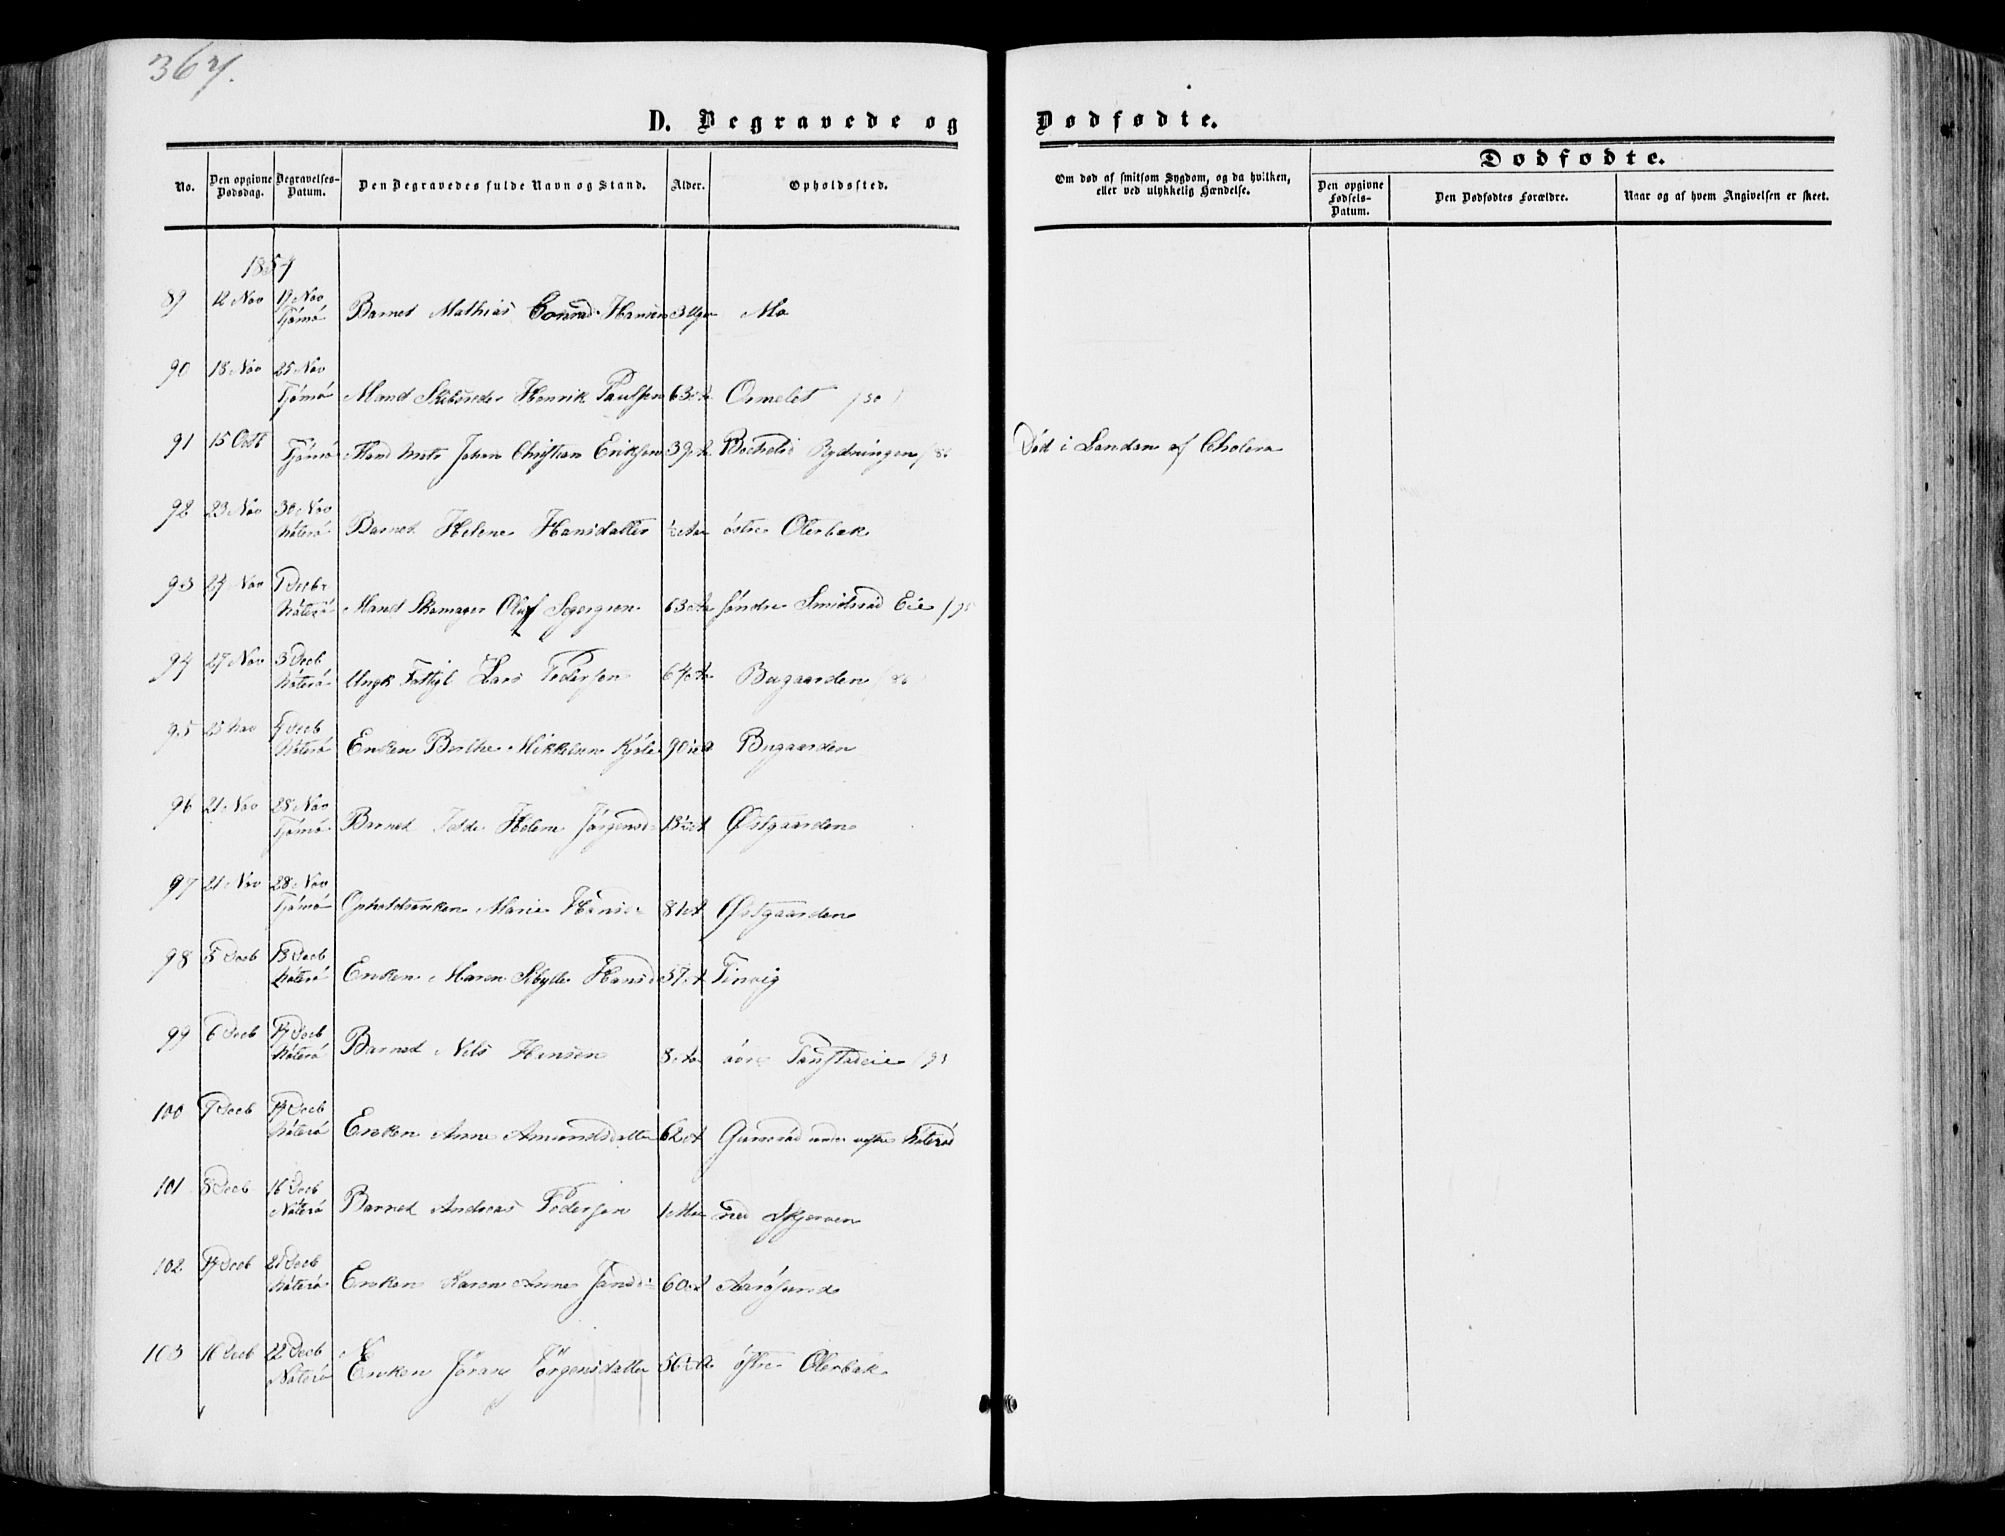 367.
D. Begravede og Dødfødte.
No.
Den opgivne Dødsdag.
Begravelses-Datum.
Den Begravedes fulde Navn og Stand.
Alder.
Opholdssted.
Om død af smitsom Sygdom, og da hvilken, eller ved ulykkelig Hændelse.
Dødfødte.
Den opgivne Fødsels-Datum.
Den Dødfødtes Forældre.
Naar og af hvem Angivelsen er skeet.
1854
89 12 Nov 19 Nov Tjømø Barnet Mathias Conrad Hansen 3 Uger Mo
90 18 Nov 25 Nov Tjømø Mand Henrik Paulsen 63 Ormelet
91 15 Octb Tjømø Johan Christian Eriksen 39 Rydningen Død i London af Cholera
92 23 Nov 30 Nov Nøterø Barnet Helene Hansdatter ½ Aar østre Olerbak
93 24 Nov 1 Decbr Nøterø Mand Skomager Oluf Segergren 63 Aar søndre Smidsrød Eie
94 27 Nov 3 Decb Nøterø Ungk Fattigl Lars Pedersen 64 Aar Bugaarden
95 25 Nov 4 Decb Nøterø Enken Berthe Mikkelsen 90 Bugaarden
96 21 Nov 28 Nov Tjømø Barnet Helene Jørgensd: 13 Østgaarden
97 21 Nov 28 Nov Tjømø Opholdsenken Marie Hansd: 81 Østgaarden
98 5 Decb 13 Decb Nøterø Enken Maren Sibylle Hansd: 57 Tinvig
99 6 Decb 14 Decb Nøterø Barnet Nils Hansen 8 Aar
100 7 Decb 14 Decb Nøterø Enken Anne Amundsdatter 62 under vestre Nøterø
101 8 Decb 16 Decb Nøterø Barnet Andreas Pedersen ned Skjerven
102 14 Decb 21 Decb Nøterø Enken Karen Anne Jansd: 60 Aarøsund
103 16 Decb 22 Decb Nøterø Enken Jøran Jørgensdatter 56 østre Olerbak